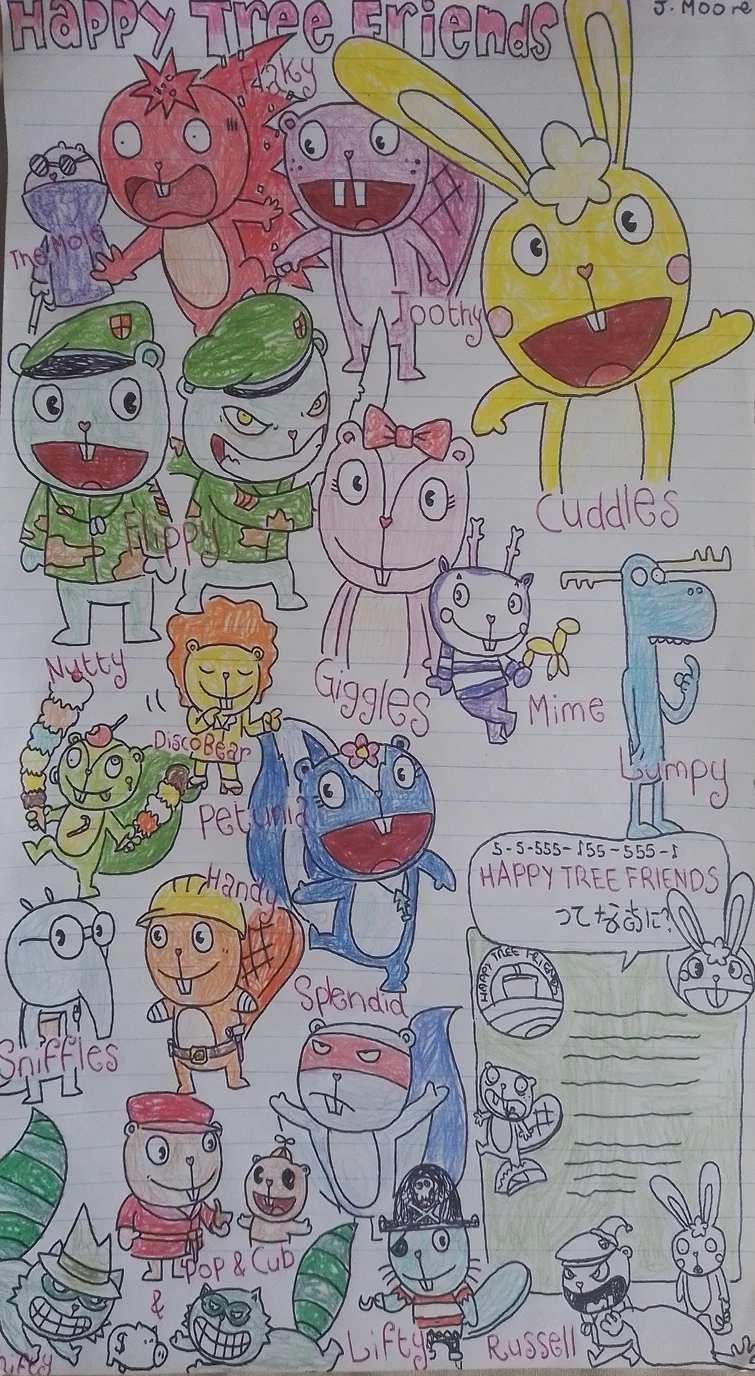 Happy Tree Friends
J. Moore
Flaky
The Mole
Toothy
Cuddles
Flippy
Giggles
Mime
Nutty
Disco Bear
Lumpy
Petunia
Handy
5-5-555-555-555-5
HAPPY TREE FRIENDS
って なあに?
HAPPY TREE FRIENDS
Splendid
Sniffles
Pop & Cub
&
Lifty
Russell